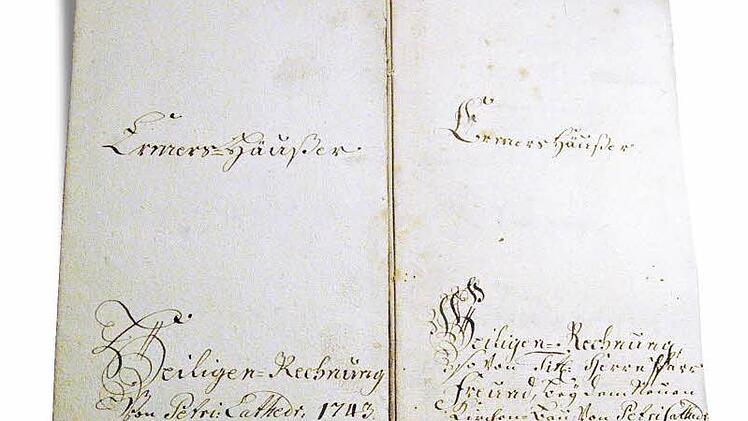 Ermers=Häußer
Heiligen=Rechnung
Von Petri: Cathedr, 1743.
Ermershäußer
Heiligen=Rechnung,
So von Tit: Herrn Pfarr
Freund, beÿ dem Neuen
Kirchen=Bau Von Petri Cathedr